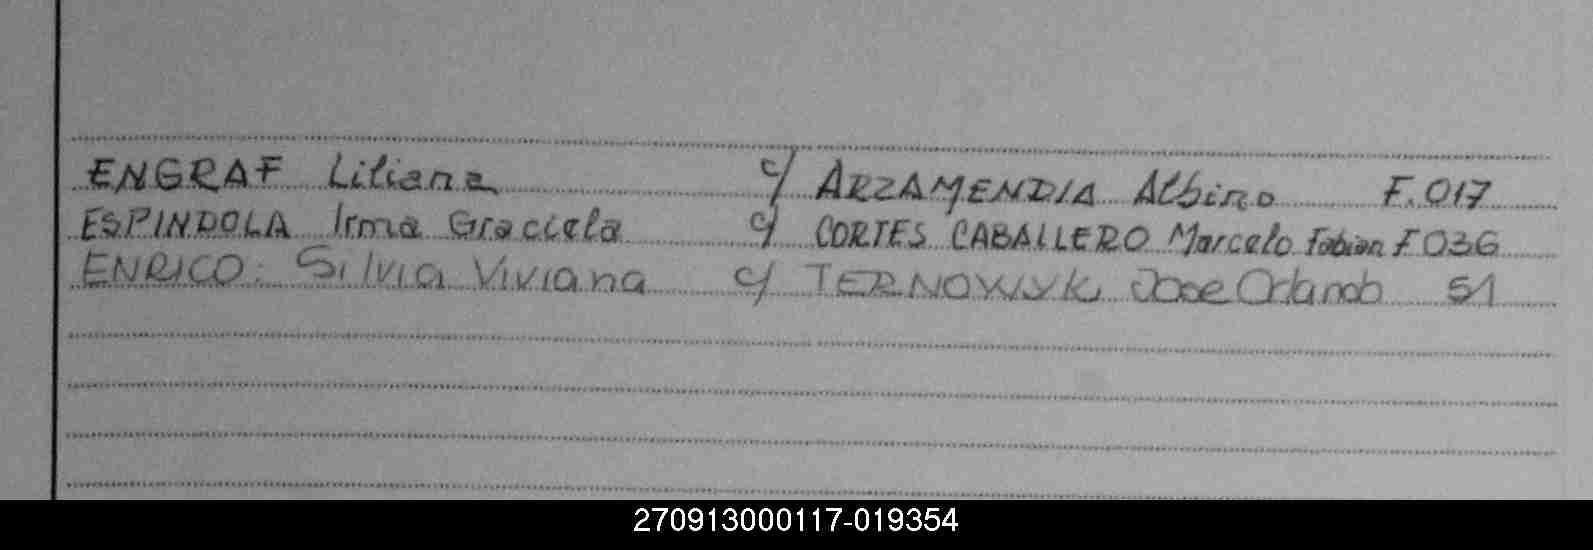 ENGRAF Liliana c/ ARZAMENDIA Albino F. 017
ESPINDOLA Irma Graciela c/ CORTES CABALLERO Marcelo Fabian F 036
ENRICO: Silvia Viviana c/ TERNOWYK Jose Orlando 51
270913000117-019354